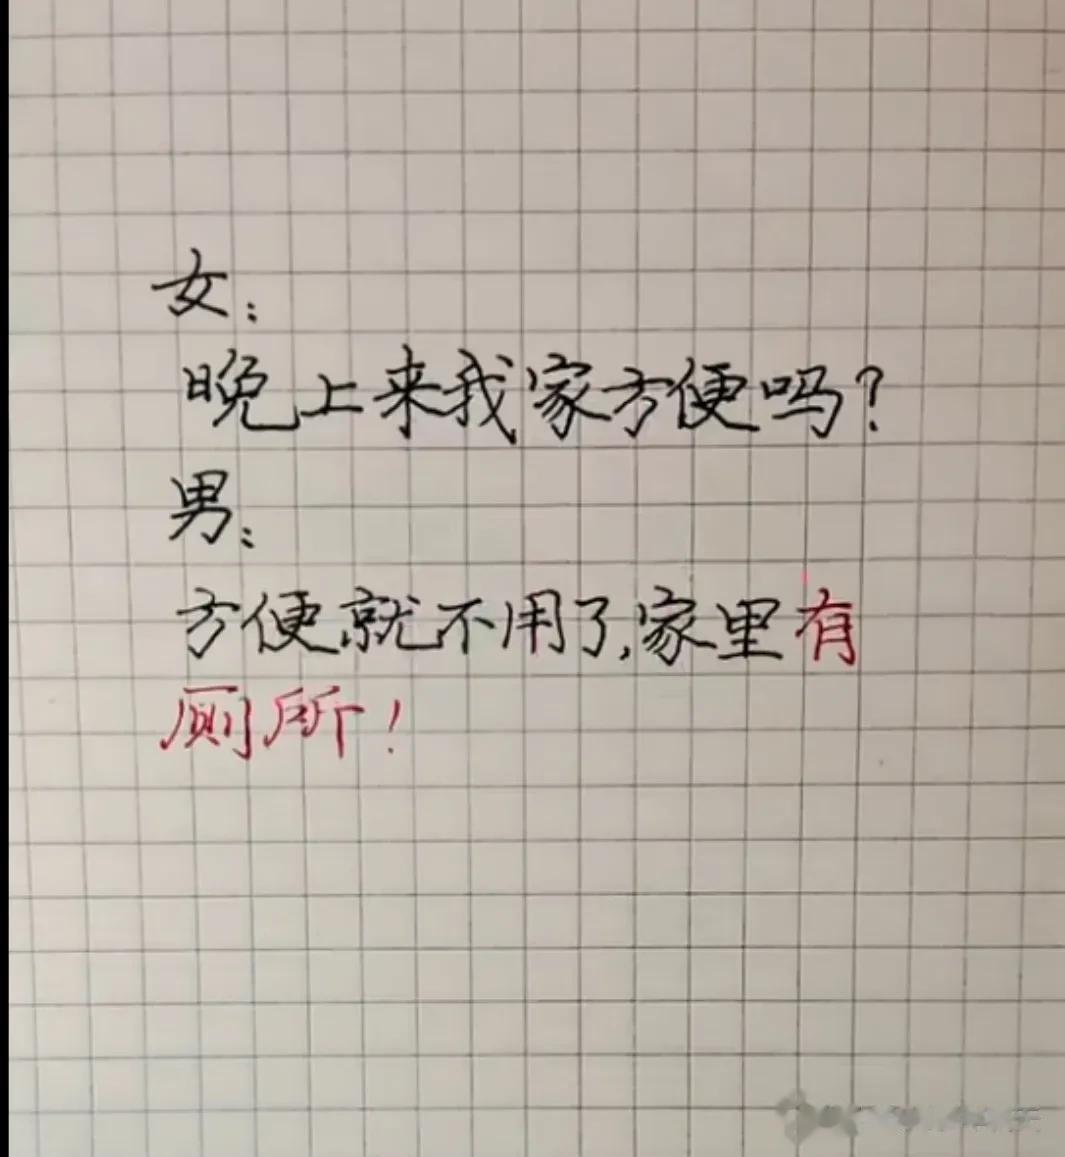 女：
晚上来我家方便吗？
男：
方便就不用了,家里有
厕所！